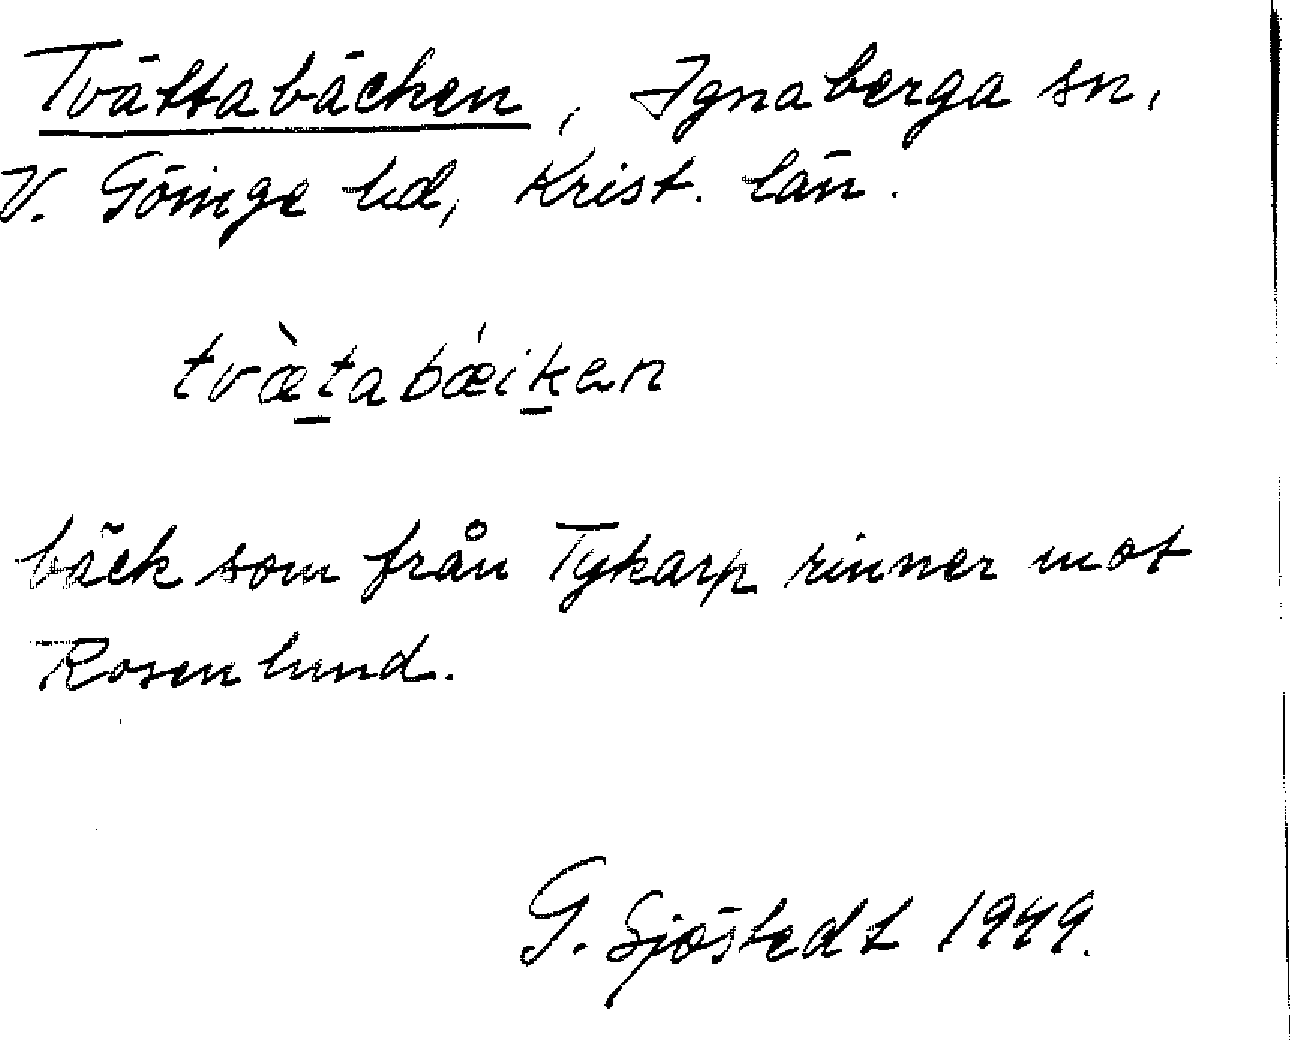 Tvättabäcken, Ignaberga sn,
V. Göinge hd, Krist. län.
tvæ̀tabǽiken
bäck som från Tykarp rinner mot
Rosenlund.
G. Sjöstedt 1949.